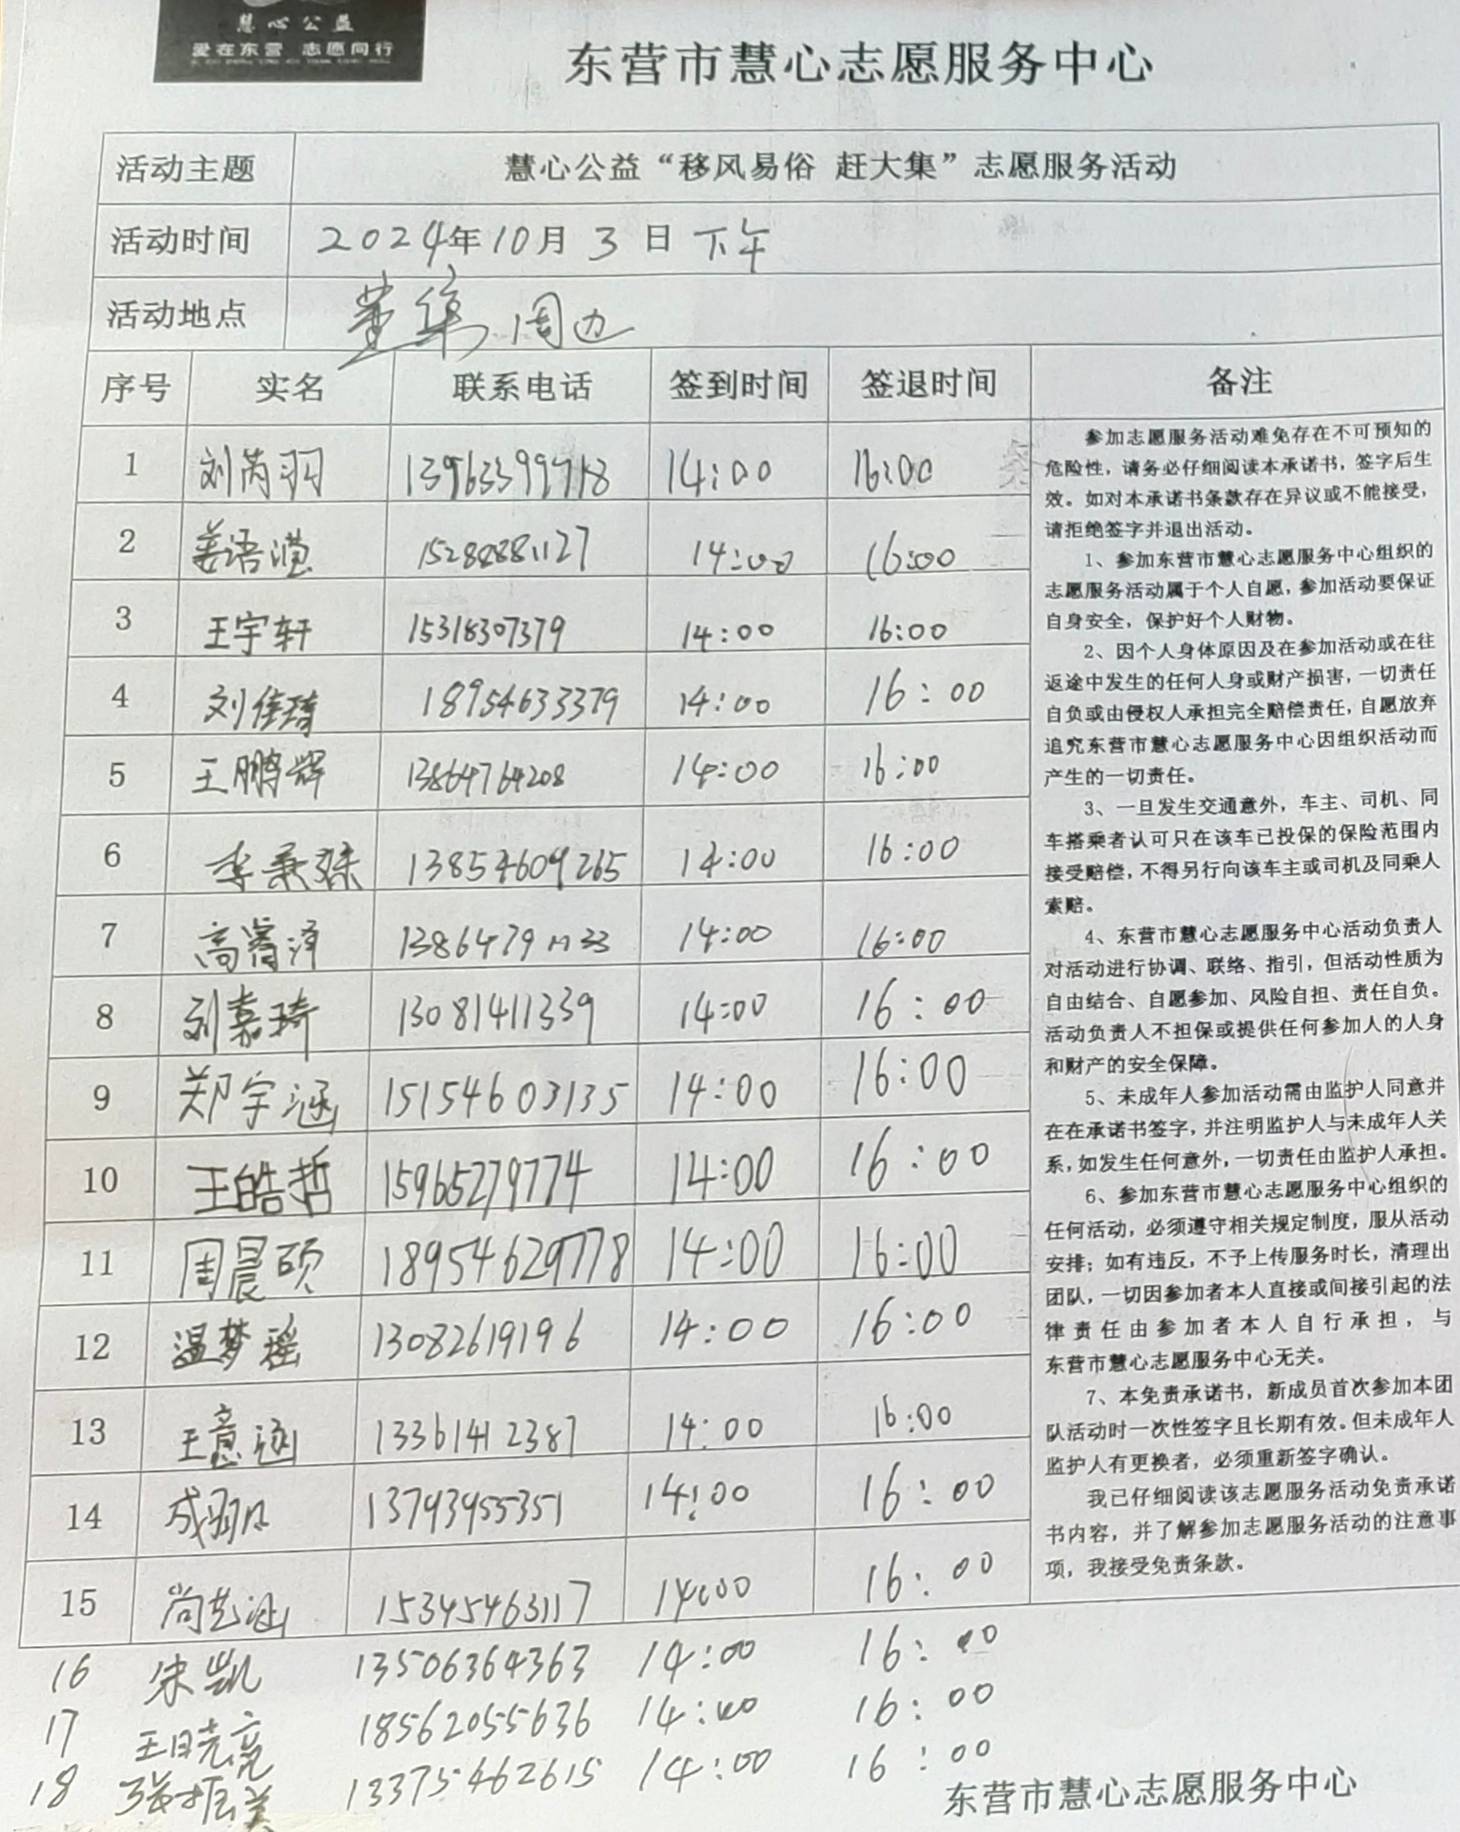 慧心公益
爱在东营 志愿同行
东营市慧心志愿服务中心
活动主题 慧心公益“移风易俗 赶大集”志愿服务活动
活动时间 2024年10月3日下午
活动地点 董集周边
序号 实名 联系电话 签到时间 签退时间 备注
1 刘芮羽 13963399718 14:00 16:00
2 姜语 15288881127 14:00 16:00
3 王宇轩 15318307379 14:00 16:00
4 刘佳琦 18954633379 14:00 16:00
5 王鹏辉 13864764208 14:00 16:00
6 李 13854609265 14:00 16:00
7 高睿泽 14:00 16:00
8 刘嘉琦 13081411339 14:00 16:00
9 郑宇涵 15154603135 14:00 16:00
10 王皓哲 15965279774 14:00 16:00
11 周晨硕 18954629778 14:00 16:00
12 温梦瑶 13082619196 14:00 16:00
13 王意涵 13361412387 14:00 16:00
14 13793955351 14:00 16:00
15 尚艺涵 15345463117 14:00 16:00
16 宋凯 13506364363 14:00 16:00
17 王晓亮 18562055636 14:00 16:00
18 张振美 13375462615 14:00 16:00
参加志愿服务活动难免存在不可预知的
危险性，请务必仔细阅读本承诺书，签字后生
效。如对本承诺书条款存在异议或不能接受，
请拒绝签字并退出活动。
1、参加东营市慧心志愿服务中心组织的
志愿服务活动属于个人自愿，参加活动要保证
自身安全，保护好个人财物。
2、因个人身体原因及在参加活动或在往
返途中发生的任何人身或财产损害，一切责任
自负或由侵权人承担完全赔偿责任，自愿放弃
追究东营市慧心志愿服务中心因组织活动而
产生的一切责任。
3、一旦发生交通意外，车主、司机、同
车搭乘者认可只在该车已投保的保险范围内
接受赔偿，不得另行向该车主或司机及同乘人
索赔。
4、东营市慧心志愿服务中心活动负责人
对活动进行协调、联络、指引，但活动性质为
自由结合、自愿参加、风险自担、责任自负。
活动负责人不担保或提供任何参加人的人身
和财产的安全保障。
5、未成年人参加活动需由监护人同意并
在在承诺书签字，并注明监护人与未成年人关
系，如发生任何意外，一切责任由监护人承担。
6、参加东营市慧心志愿服务中心组织的
任何活动，必须遵守相关规定制度，服从活动
安排；如有违反，不予上传服务时长，清理出
团队，一切因参加者本人直接或间接引起的法
律责任由参加者本人自行承担，与
东营市慧心志愿服务中心无关。
7、本免责承诺书，新成员首次参加本团
队活动时一次性签字且长期有效。但未成年人
监护人有更换者，必须重新签字确认。
我已仔细阅读该志愿服务活动免责承诺
书内容，并了解参加志愿服务活动的注意事
项，我接受免责条款。
东营市慧心志愿服务中心